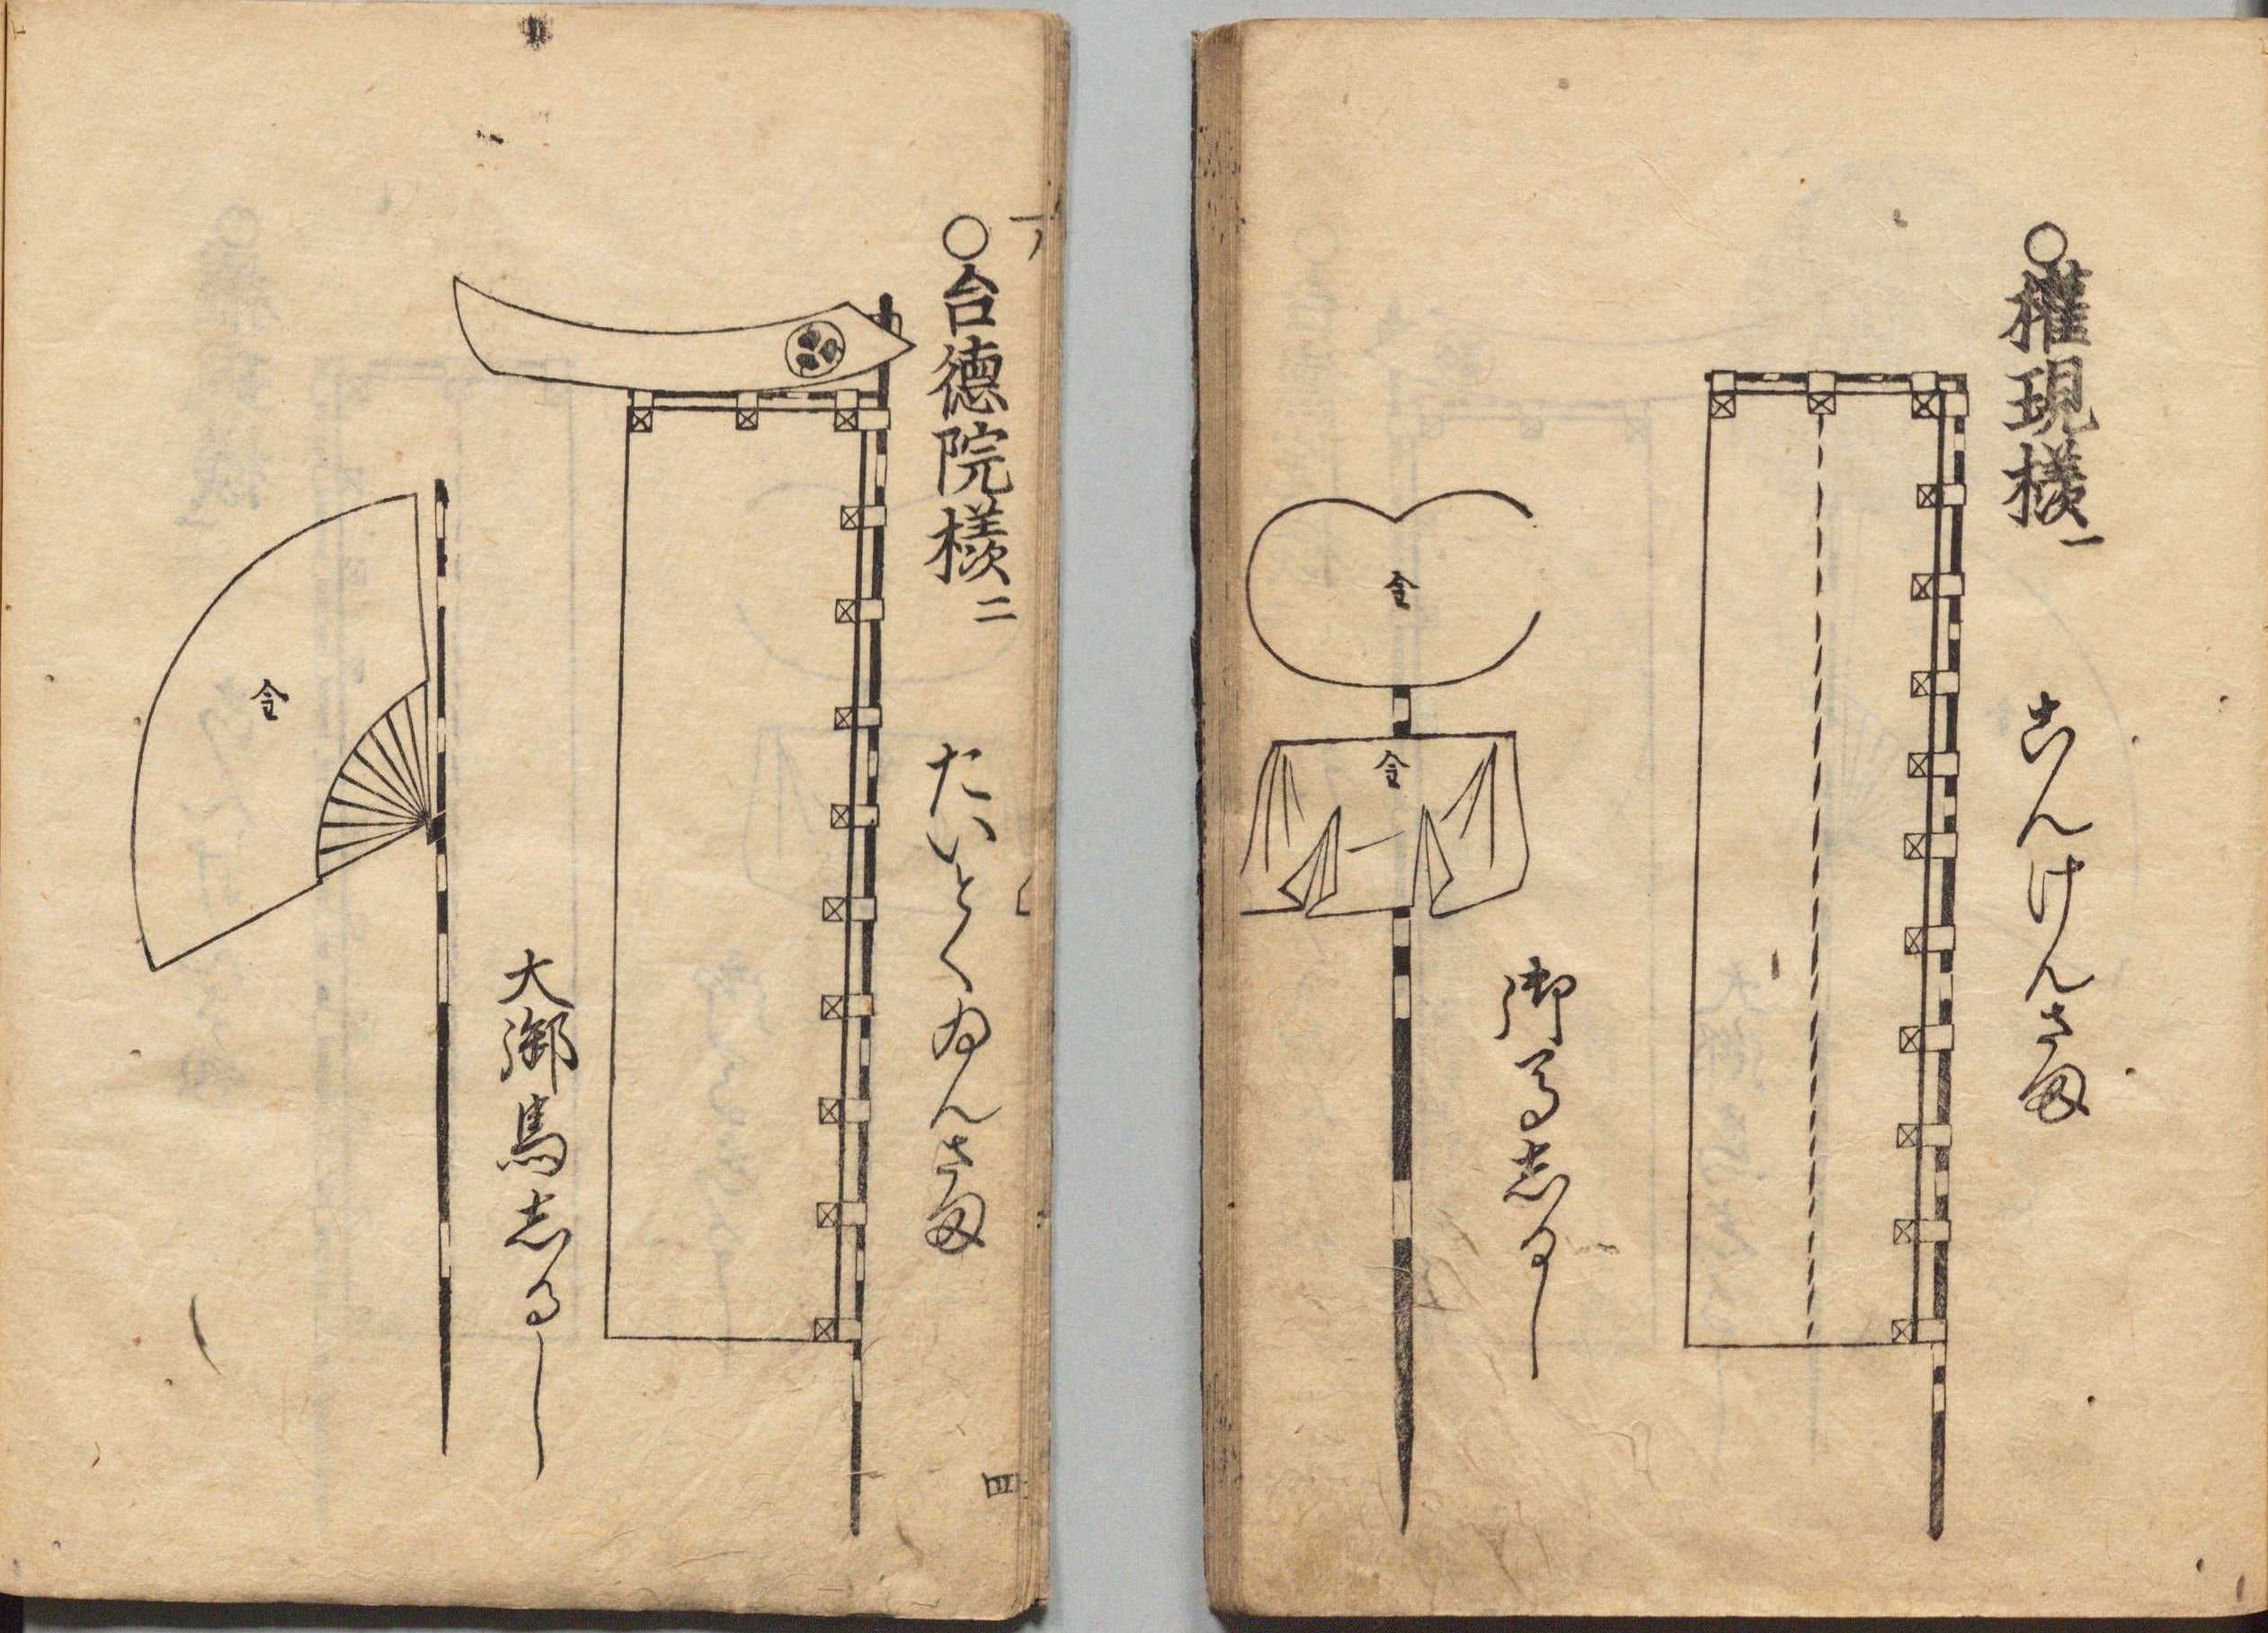 ○權現様一 こんけんさま
御馬志るし
金
金
○台徳院様二 たいとくゐんさま
大御馬志るし
金
四